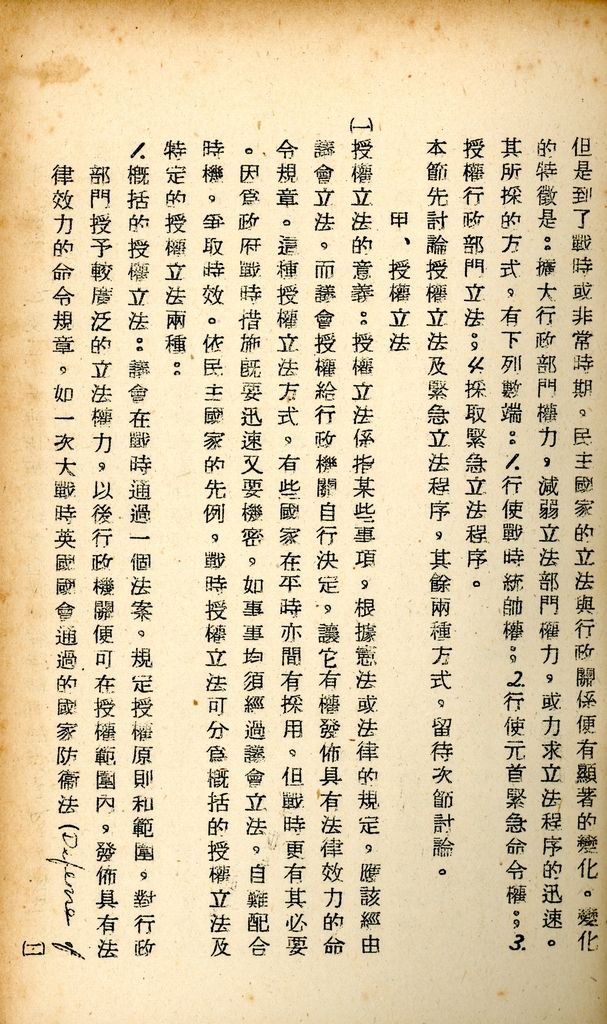 但是到了戰時或非常時期，民主國家的立法與行政關係便有顯著的變化。變化
的特徵是：擴大行政部門權力，減弱立法部門權力，或力求立法程序的迅速。
其所採的方式，有下列數端：1.行使戰時統帥權；2.行使元首緊急命令權；3.
授權行政部門立法；4.採取緊急立法程序。
本節先討論授權立法及緊急立法程序，其餘兩種方式，留待次節討論。
甲、授權立法
㈠授權立法的意義：授權立法係指某些事項，根據憲法或法律的規定，應該經由
議會立法，而議會授權給行政機關自行決定，讓它有權發佈具有法律效力的命
令規章。這種授權立法方式，有些國家在平時亦間有採用。但戰時更有其必要
。因爲政府戰時措施既要迅速又要機密，如事事均須經過議會立法，自難配合
時機，爭取時效。依民主國家的先例，戰時授權立法可分爲概括的授權立法及
特定的授權立法兩種：
1.概括的授權立法：議會在戰時通過一個法案，規定授權原則和範圍，對行政
部門授予較廣泛的立法權力，以後行政機關便可在授權範圍內，發佈具有法
律效力的命令規章，如一次大戰時英國國會通過的國家防衞法(Defense of